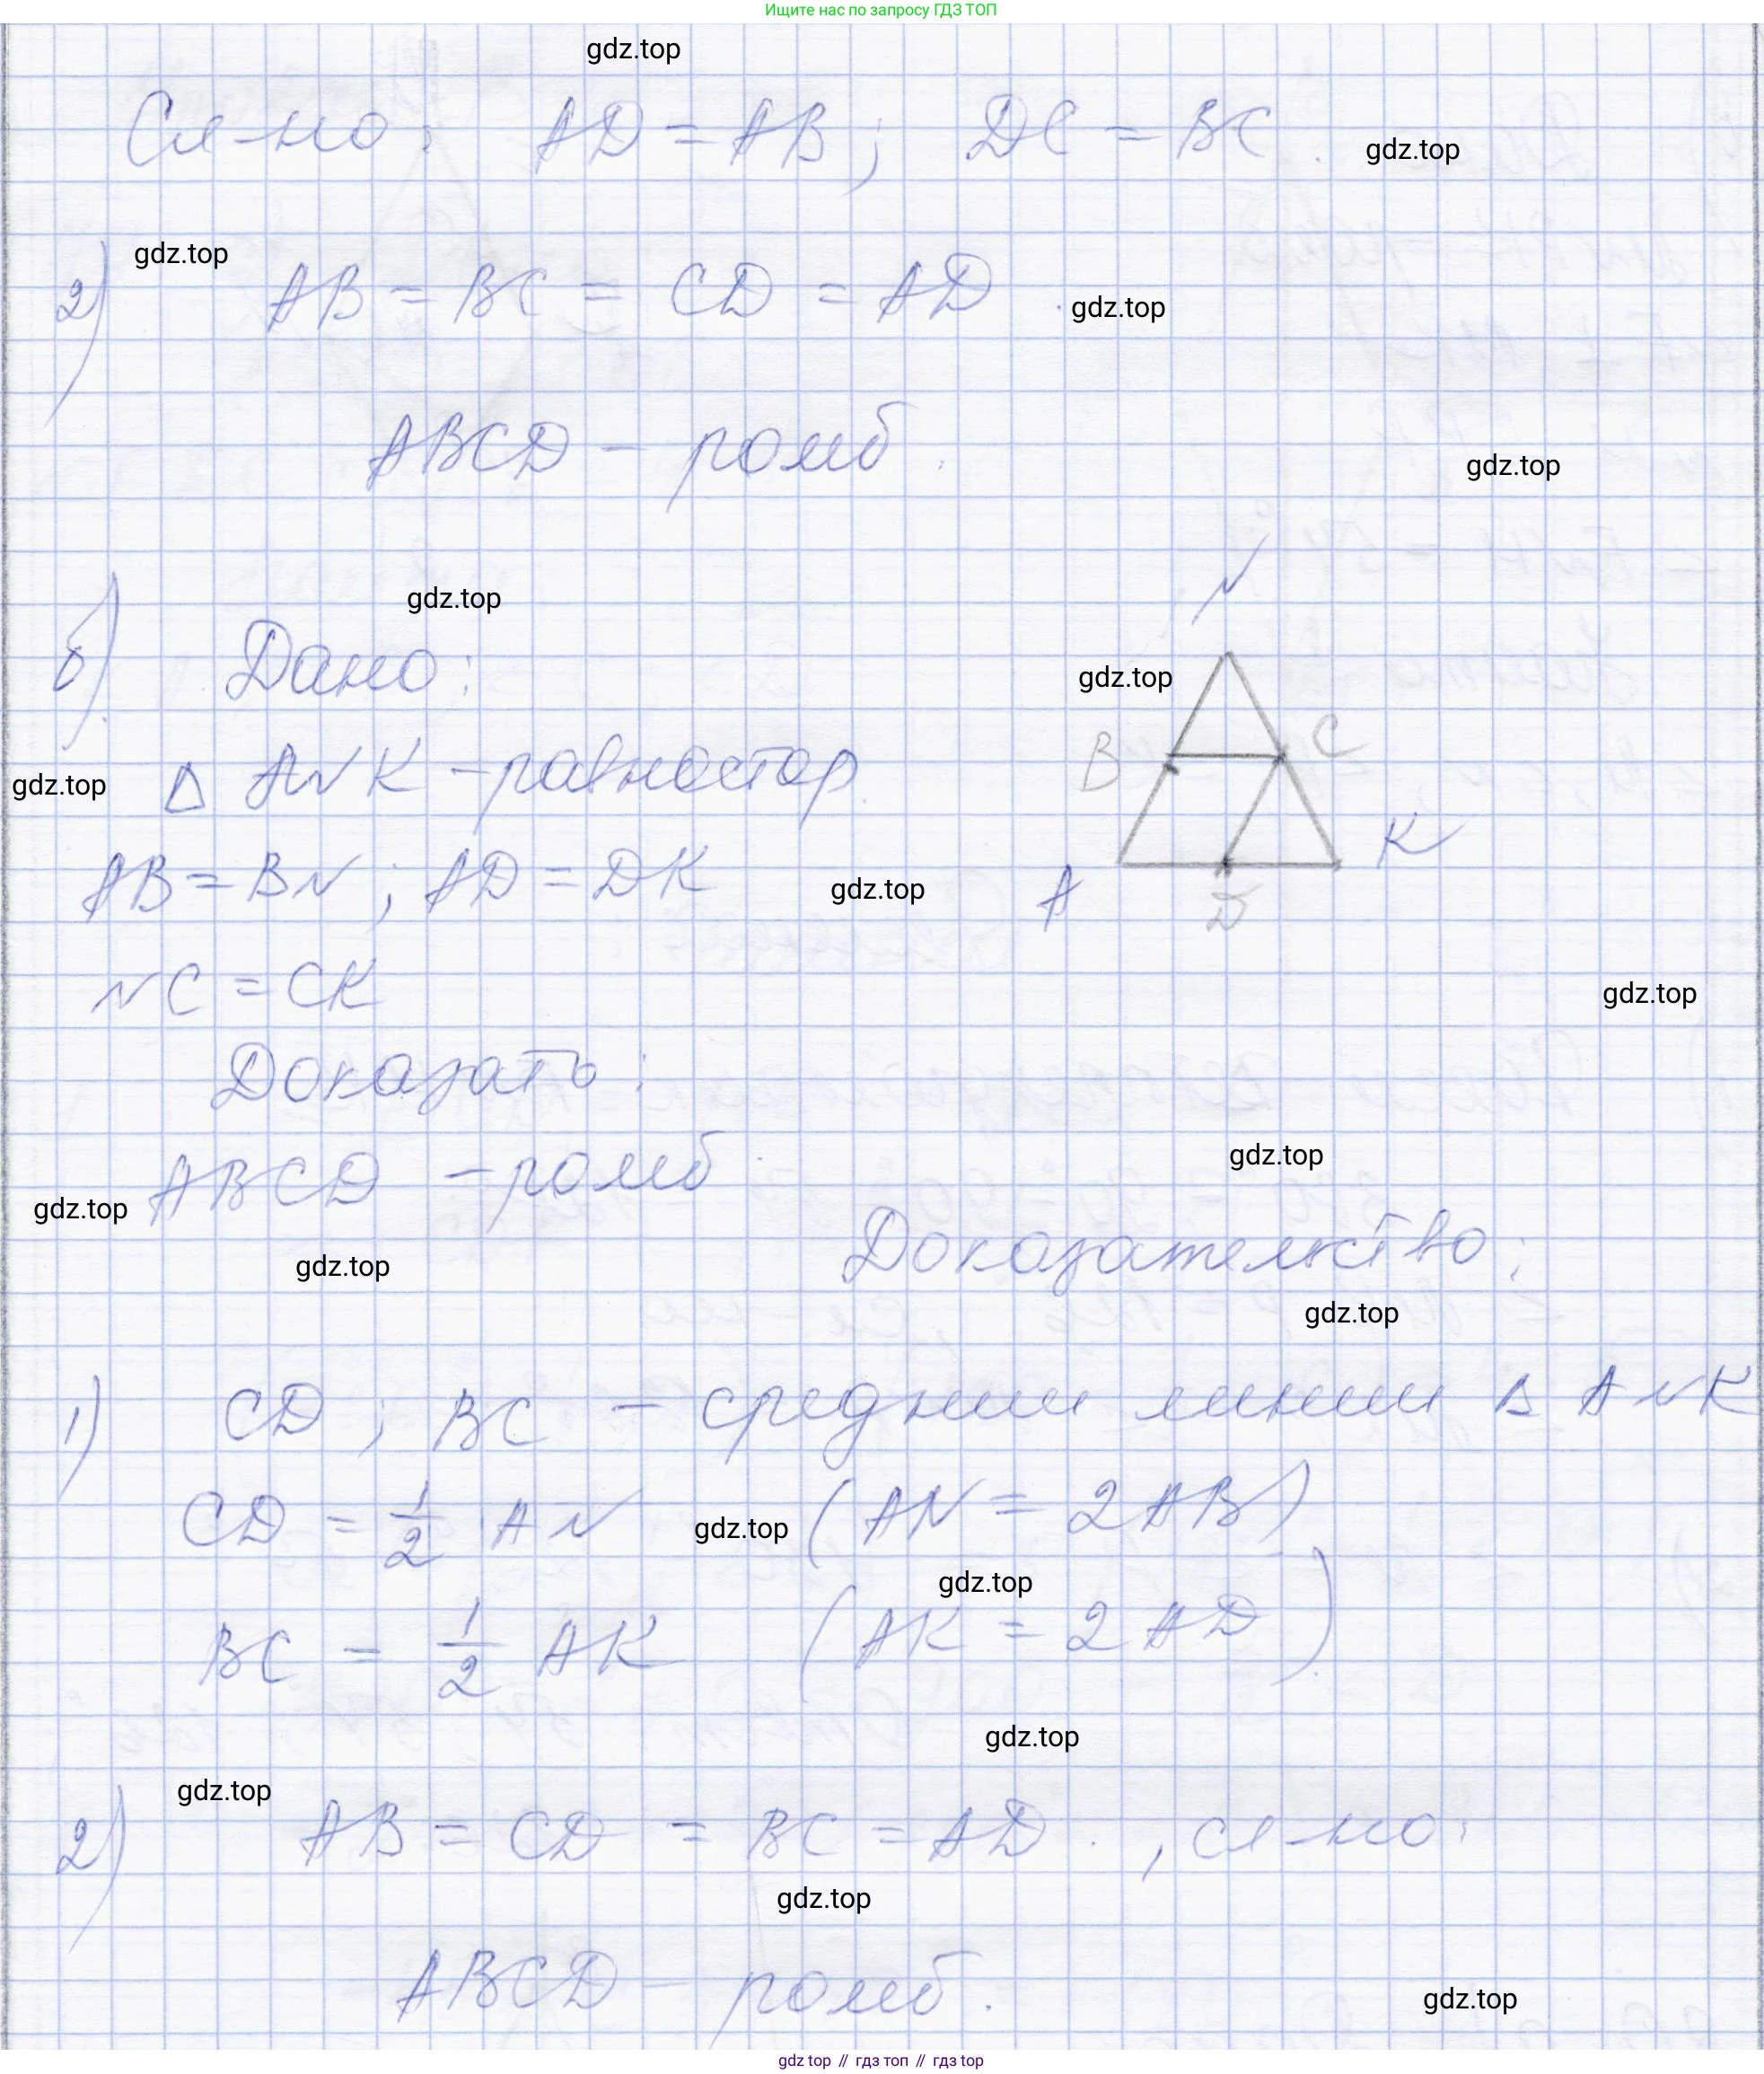 Ищите нас по запросу ГДЗ ТОП
gdz.top
Сл-но: AD = AB; DC = BC.
gdz.top
gdz.top
2) AB = BC = CD = AD.
gdz.top
ABCD - ромб.
gdz.top
N
gdz.top
б) Дано:
gdz.top
B C
gdz.top
Δ ANK - равностор.
K
AB = BN; AD = DK
gdz.top
A
D
NC = CK
gdz.top
Доказать:
gdz.top
ABCD - ромб.
gdz.top
Доказательство:
gdz.top
gdz.top
1) CD; BC - средние линии Δ ANK
CD = 1/2 AN (AN = 2AB)
gdz.top
gdz.top
BC = 1/2 AK (AK = 2AD)
gdz.top
gdz.top
2) AB = CD = BC = AD., сл-но:
gdz.top
ABCD - ромб.
gdz.top
gdz top // гдз топ // гдз top